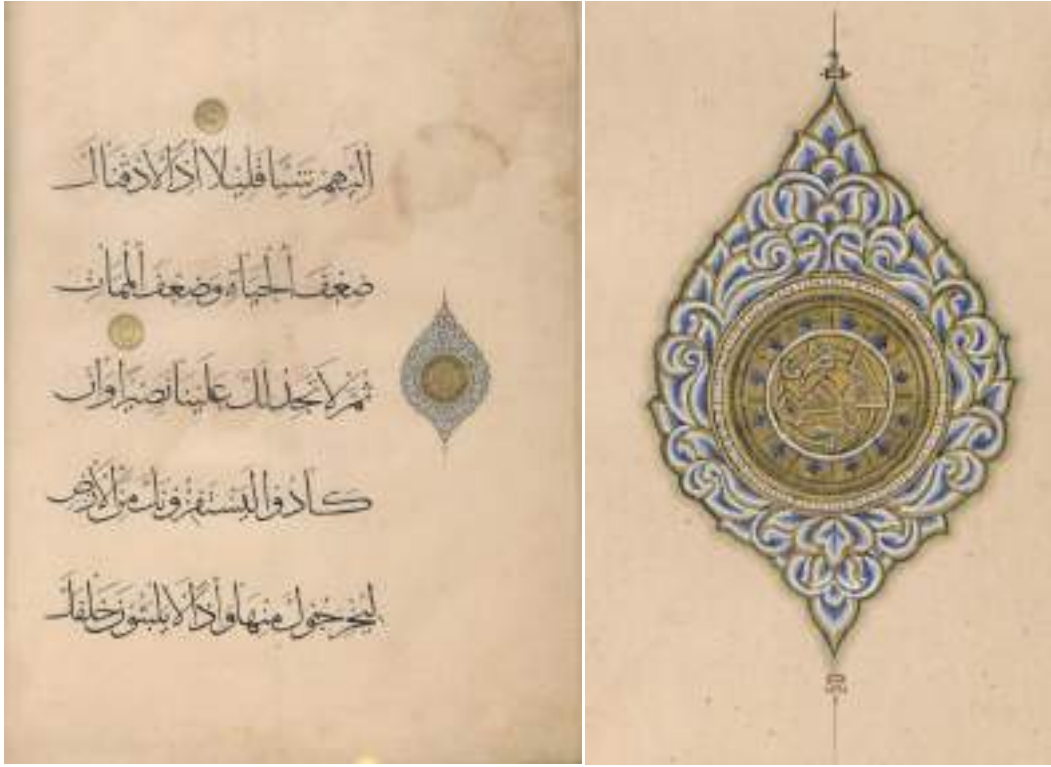 اليهم شيا قليلا اذا لاذقناك
ضعف الحياة وضعف الممات
ثم لا تجد لك علينا نصيرا وان
كادوا ليستفزونك من الارض
ليخرجوك منها واذا لا يلبثون خلفك